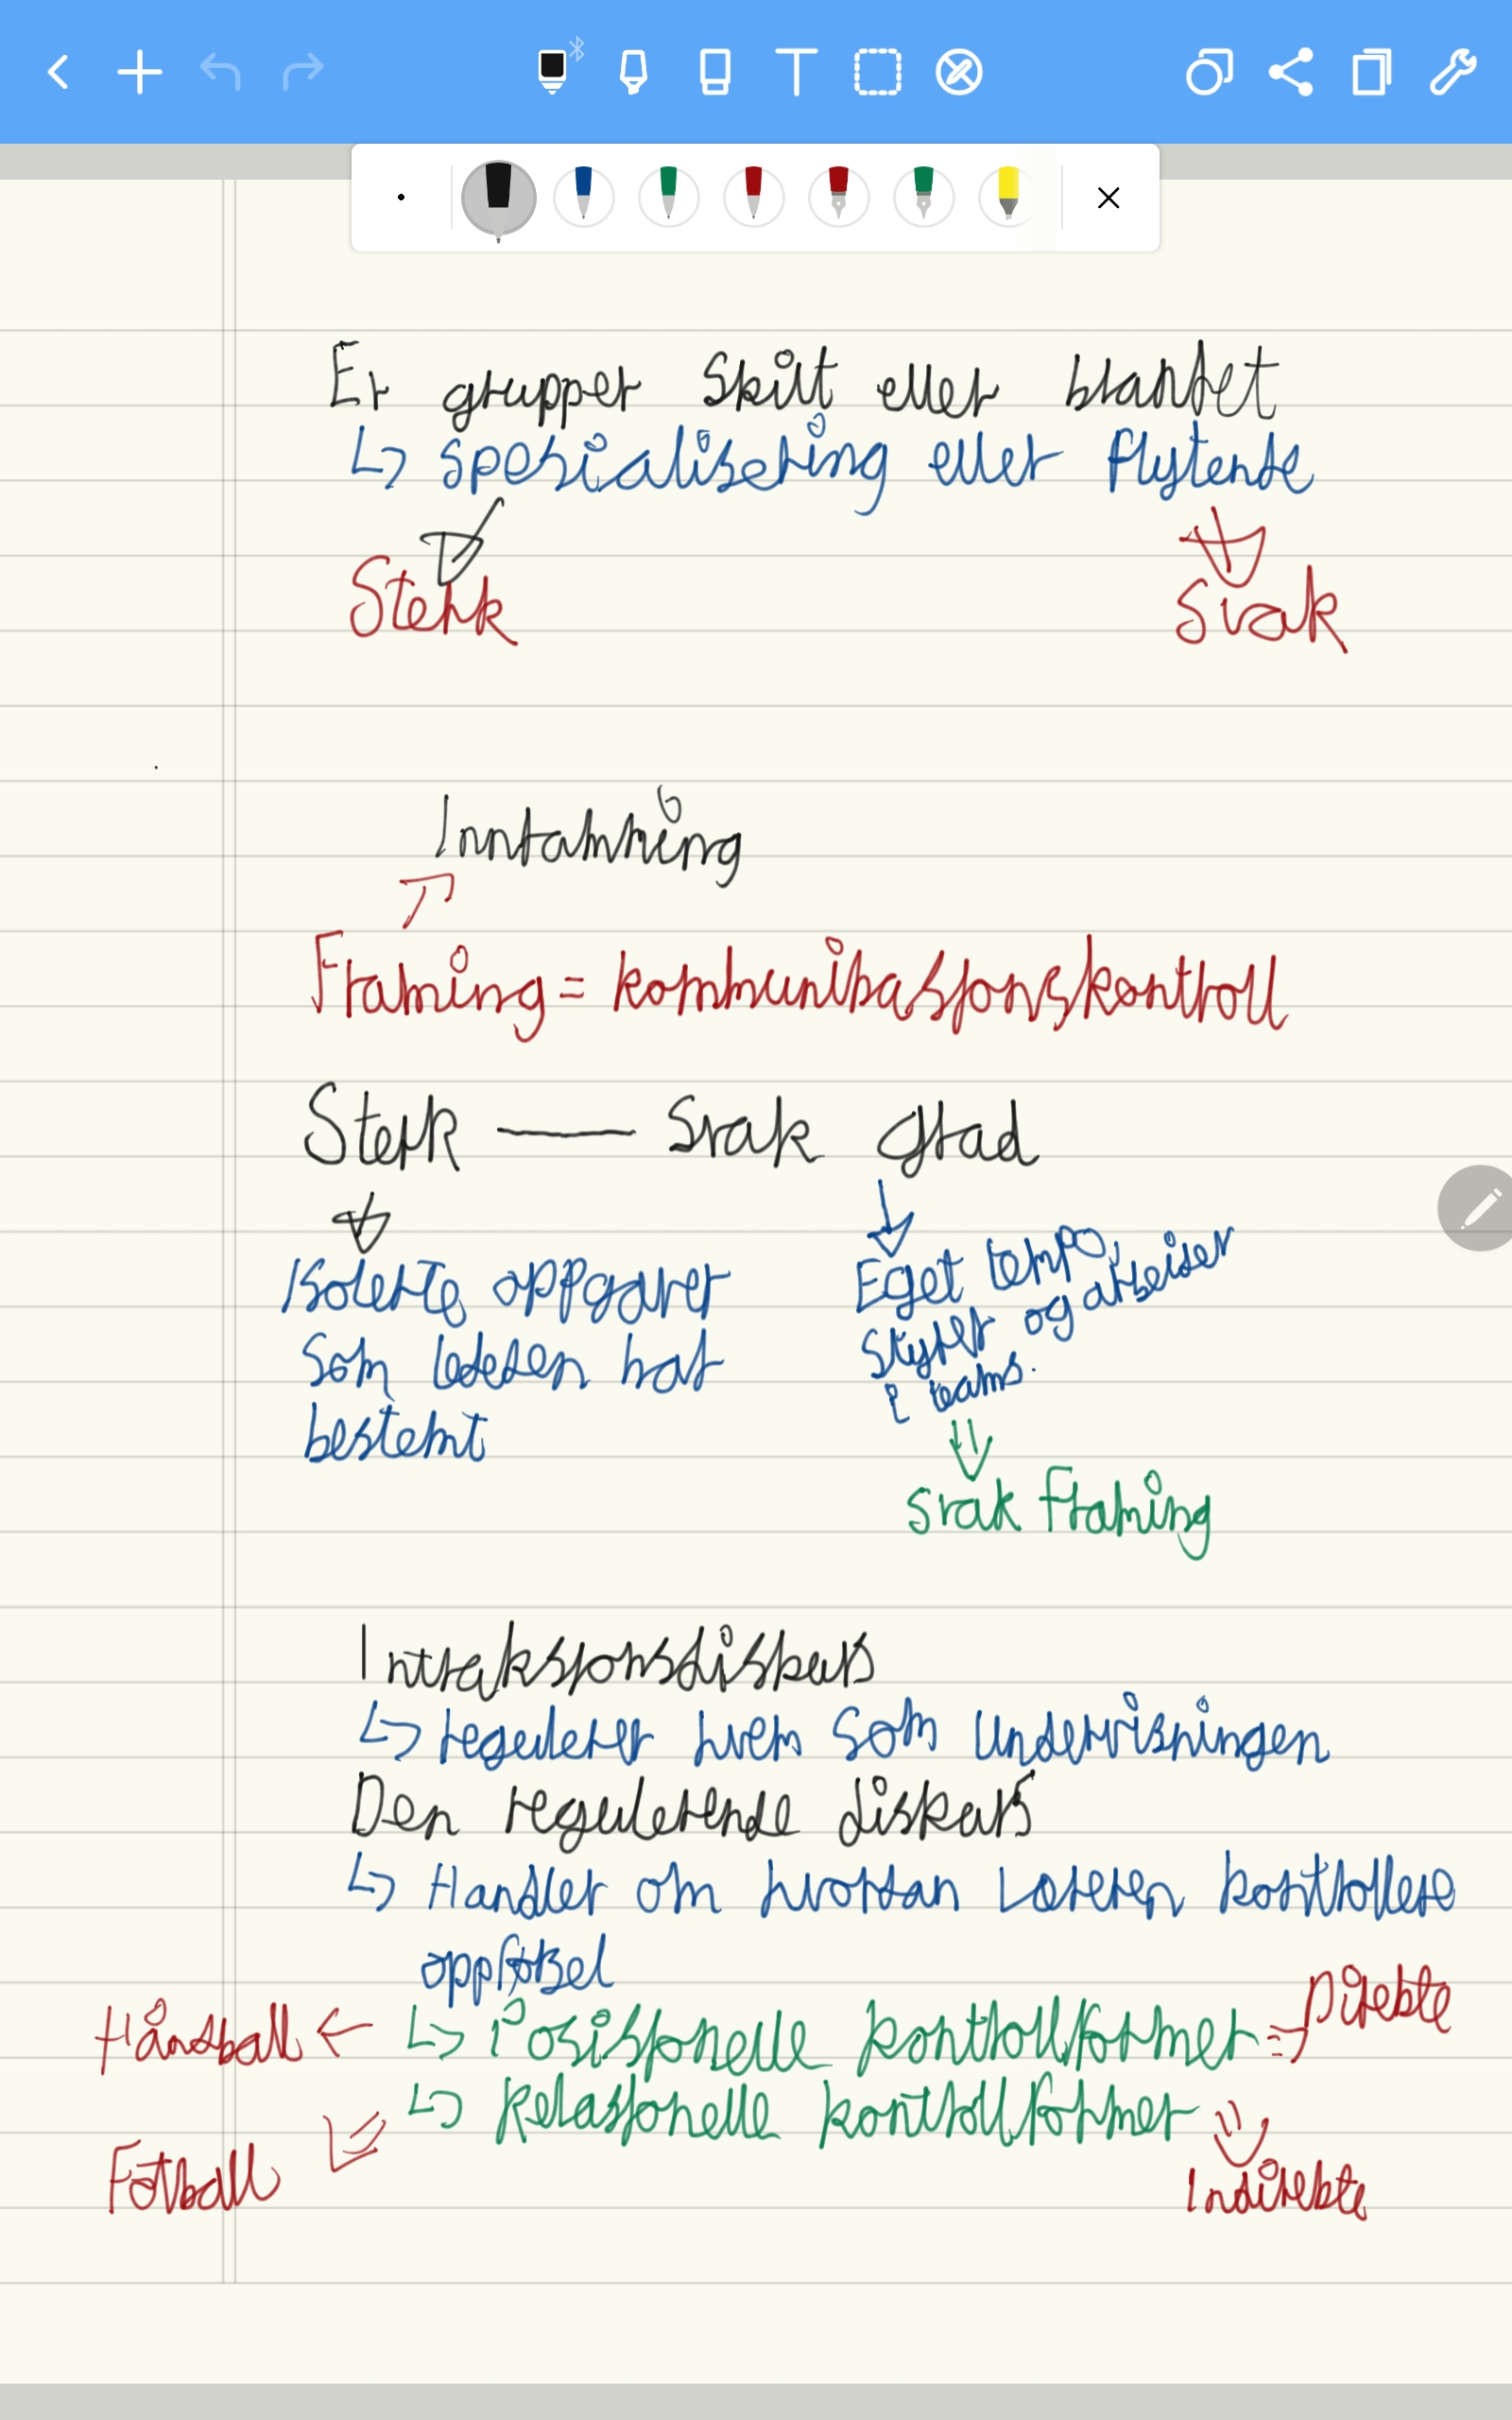 Er grupper skilt eller blandet
↳ spesialisering eller flytende
Sterk Svak
Innramming
Framing = kommunikasjonskontroll
Sterk — Svak grad
Isolerte oppgaver
som læreren har
bestemt
Eget tempo,
styrer og arbeider
i teams.
svak framing
Intraksjonsdiskurs
↳ regulerer hvem som undervisningen
Den regulerende diskurs
↳ Handler om hvordan læreren kontrollere
oppførsel
Håndball ← ↳ Posisjonelle kontrollformer => Direkte
↳ Relasjonelle kontrollformer
Fotball Indirekte